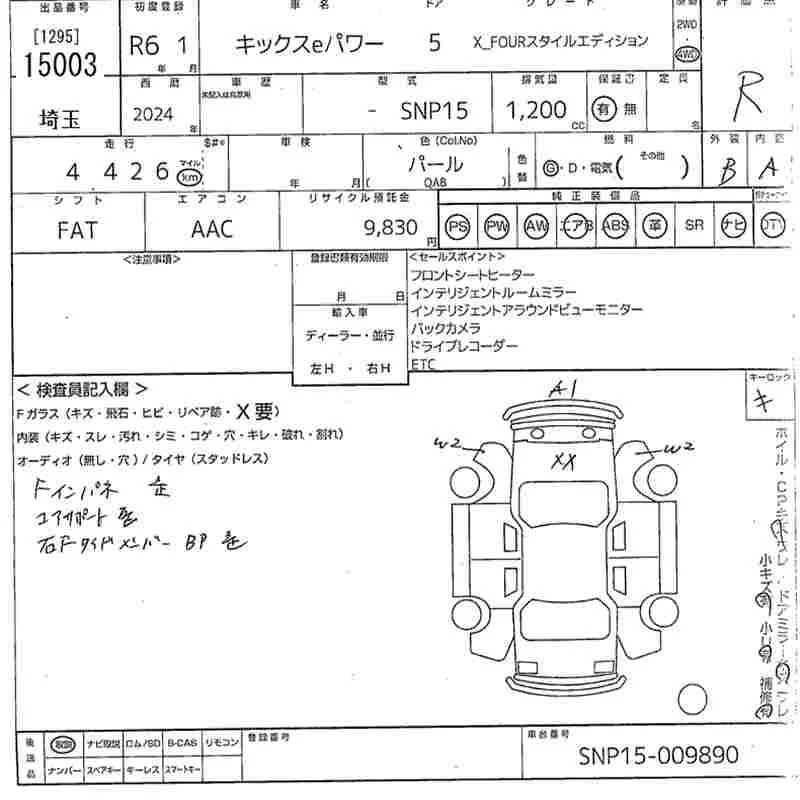 出品番号 初度登録 車 名 ドア グレード
[1295]
15003
埼玉
R6 1
年 月
キックスeパワー 5 X_FOURスタイルエディション
2WD
・
4WD
西 暦 車 歴 型 式 排気量 保証書 定 員
2024
年
- SNP15 1,200
CC
有 無
名
R
走 行 車 検 色 (Col.No) 燃 料 外 装 内 装
4 4 2 6
マイル
km
年 月
パール
( QAB )
色
替
G・D・電気( その他 )
B A
シ フ ト エ ア コ ン リサイクル預託金 純 正 装 備 品
FAT AAC 9,830
円
PS PW AW エアB ABS 革 SR ナビ
<注意事項> 登録書類有効期限
月 日
輸 入 車
ディーラー・並行
左H ・ 右H
<セールスポイント>
フロントシートヒーター
インテリジェントルームミラー
インテリジェントアラウンドビューモニター
バックカメラ
ドライブレコーダー
ETC
< 検査員記入欄 >
Fガラス(キズ・飛石・ヒビ・リペア跡・X要)
内装(キズ・スレ・汚れ・シミ・コゲ・穴・キレ・破れ・割れ)
オーディオ(無し・穴)/タイヤ(スタッドレス)
Fインパネ 歪
コアサポート 歪
右Fサイドメンバー BP 歪
A1
W2 W2
XX
キーロック
キ
小キズ有 小凹有 補修有
後
送
品
取説 ナビ取説 ロム/SD B-CAS リモコン
ナンバー スペアキー キーレス スマートキー
登録番号
車台番号
SNP15-009890